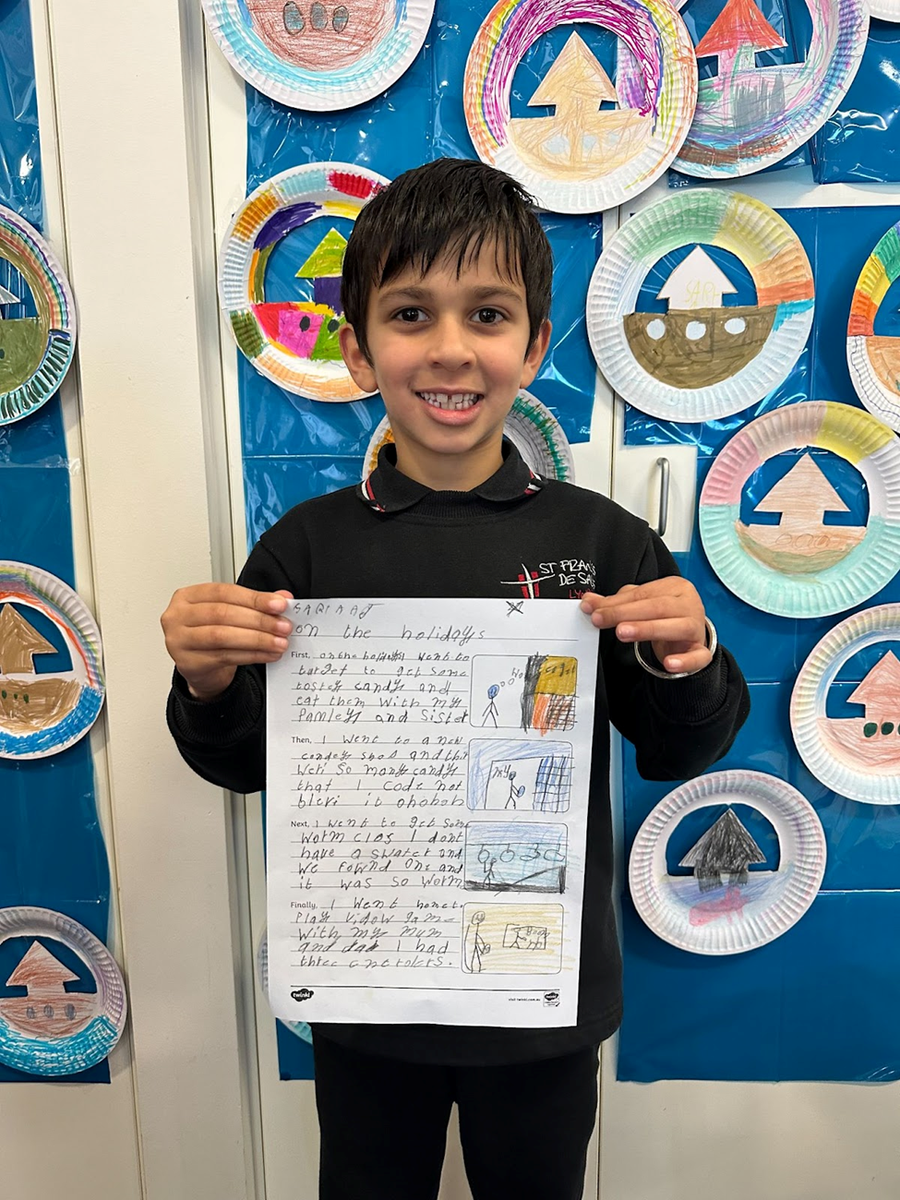 SARI
ST FRANCIS
DE SA
LY
on the holidays
First, onthe holidays went to
target to get some
tostey candy and
eat them with my
Pamley and sister
Then, I went to a new
candey shos and ther
wer so many candy
that I code not
blevi it ohohoh
Next, I went to get some
worm clos I dont
have a swater and
we fownd one and
it was so worm
Finally, I went home t.
Play vidow game
with my mum
and dad I had
three cnerolers.
twinkl
visit twinkl.com.au